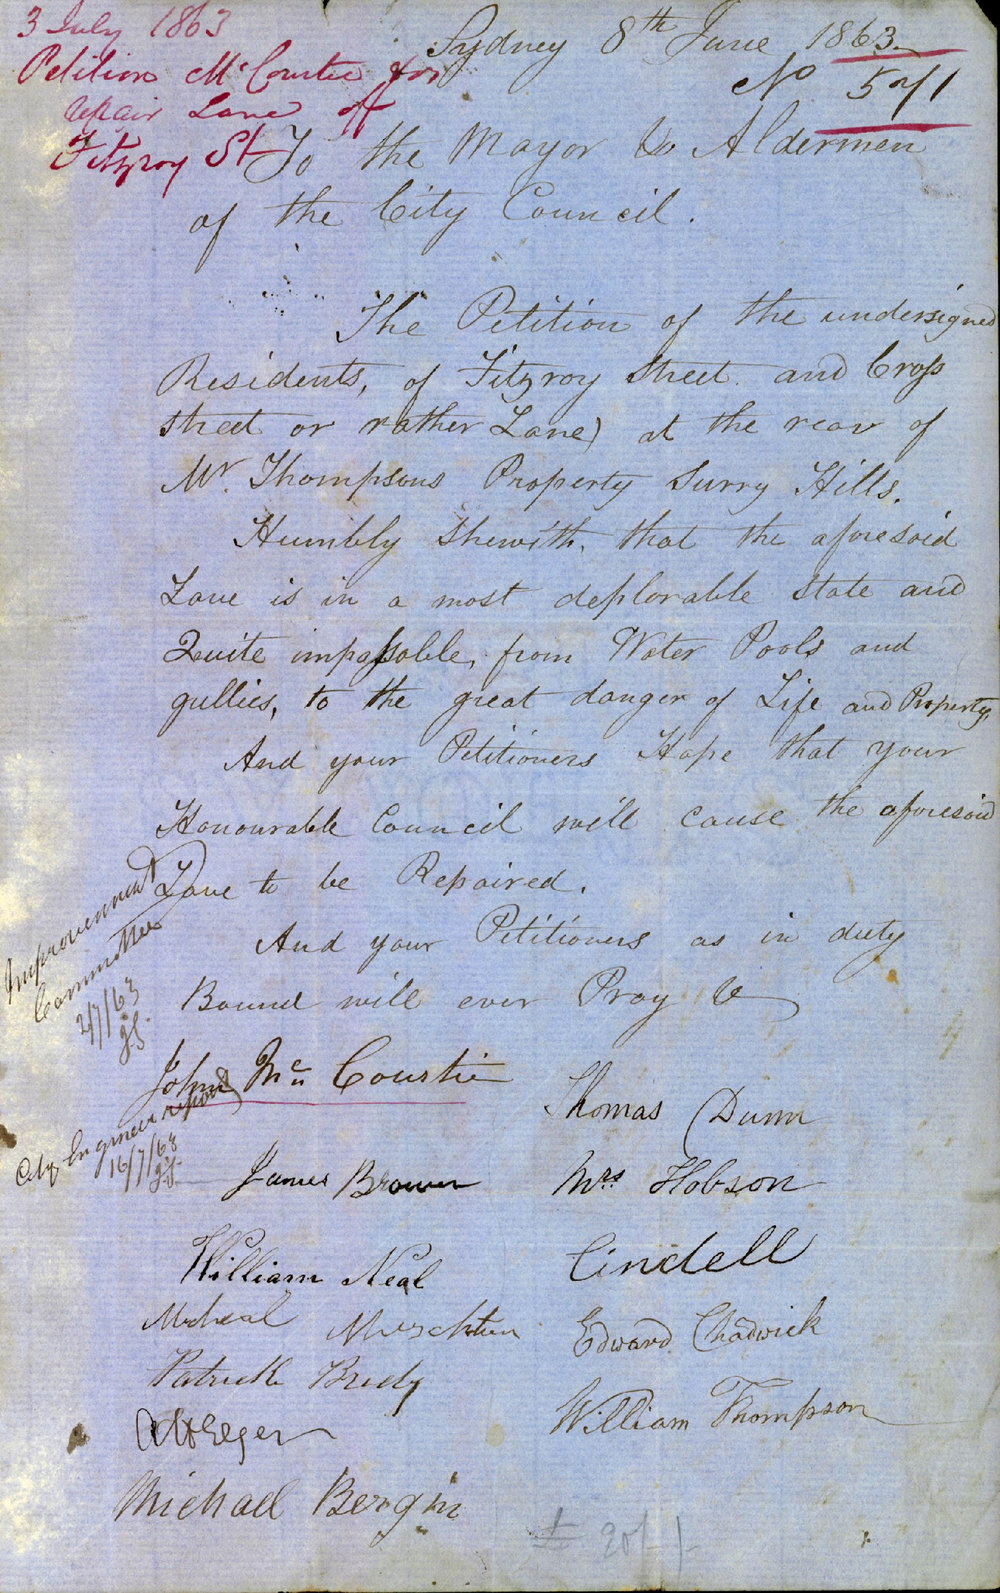 3 July 1863
Petition McCourtie for
repair Lane off
Fitzroy St
Sydney 8th June 1863
No 571
To the Mayor & Aldermen
of the City Council.
The Petition of the undersigned
Residents, of Fitzroy Street and Cross
street or rather Lane) at the rear of
Mr. Thompsons Property Surry Hills.
Humbly Sheweth, that the aforesaid
Lane is in a most deplorable state and
Quite impassable, from Water Pools and
gullies, to the great danger of Life and Property,
And your Petitioners Hope that your
Honourable Council will cause the aforesaid
Lane to be Repaired.
And your Petitioners as in duty
Bound will ever Pray &
Improvement
Committee
2/7/63
City Engineer report
16/7/63
John Mc Courtie
Thomas Dunn
James Brown
Mrs Hobson
William Neal
Cindell
Micheal
Edward Chadwick
Patrick Brudy
William Thompson
Michael Bergin